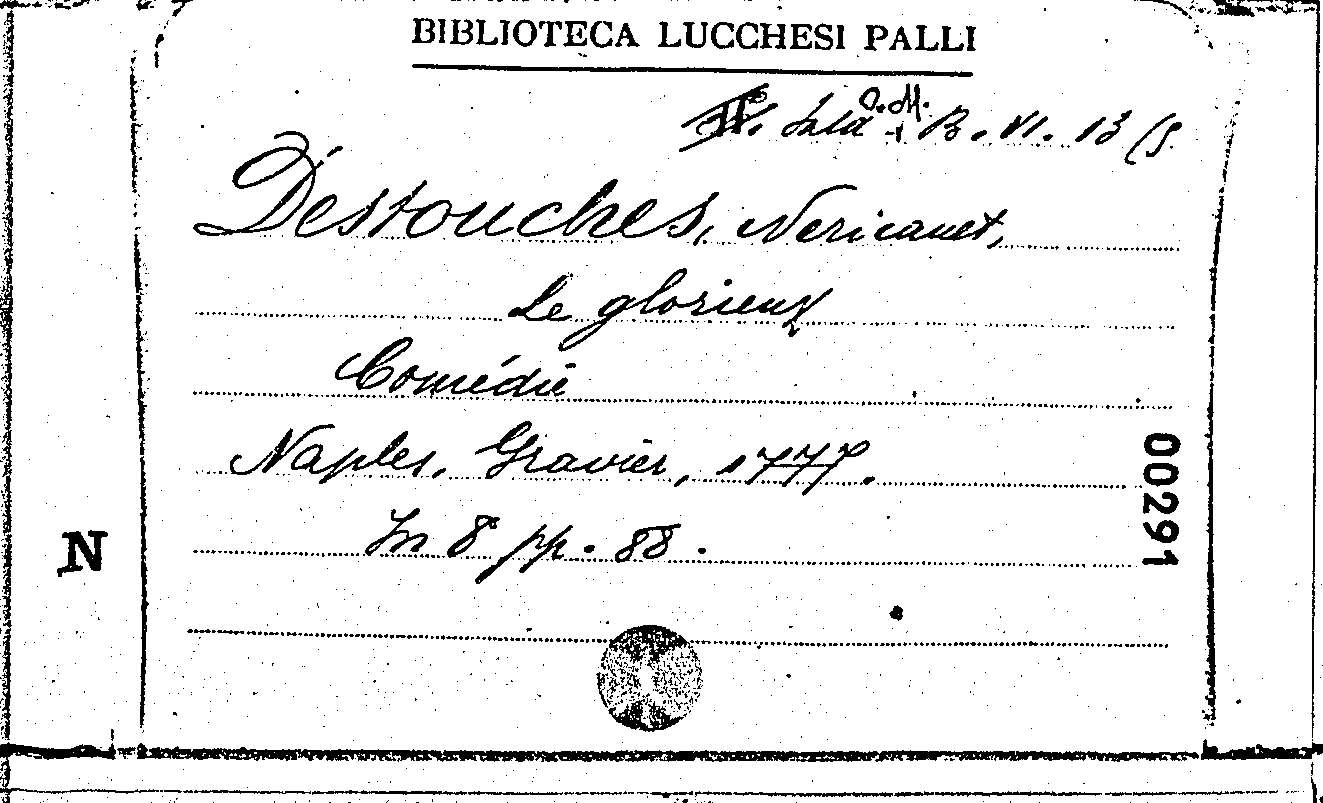 BIBLIOTECA LUCCHESI PALLI
Sala O.M. B. VI. 13 (5.
Déstouches, Nericauet,
Le glorieux
Comédie
Naples, Gravier, 1777.
In 8° pp. 88.
00291
N